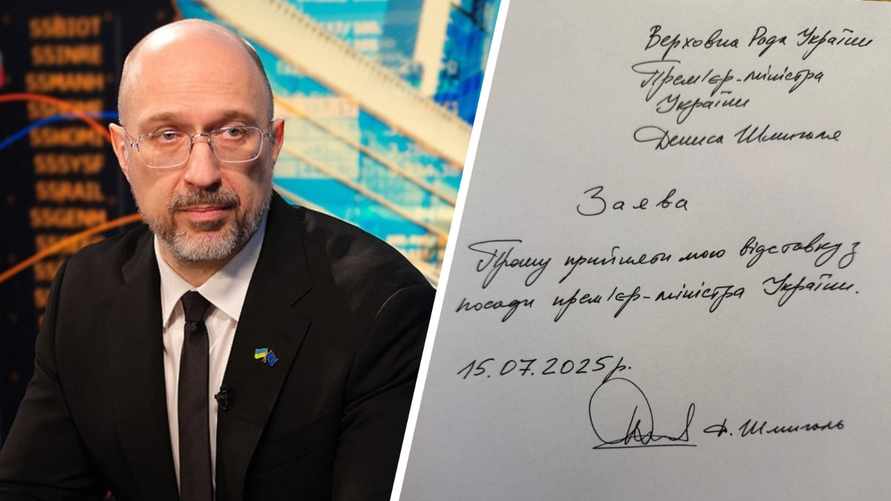 SSBIOT
SSINRE
SSMANH
SSHOME
SSHOM
SSSYSF
SSRAIL
SSGENM
Верховна Рада України
Прем'єр-міністра
України
Дениса Шмигаля
Заява
Прошу прийняти мою відставку з
посади прем'єр-міністра України.
15.07.2025р.
Д. Шмигаль